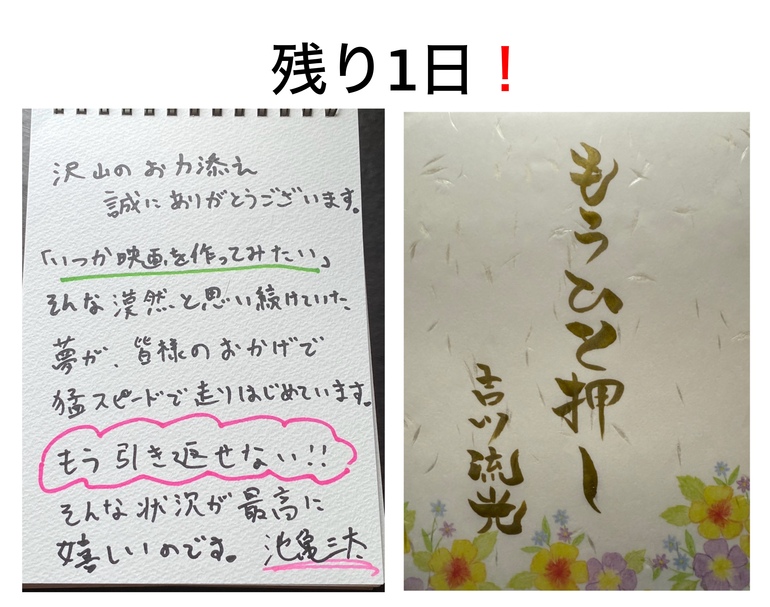 残り1日！
沢山のお力添え
誠にありがとうございます。
「いつか映画を作ってみたい」
そんな漠然と思い続けていた
夢が、皆様のおかげで
猛スピードで走りはじめています。
もう引き返せない!!
そんな状況が最高に
嬉しいのです。 池亀三太
もうひと押し
吉川流光